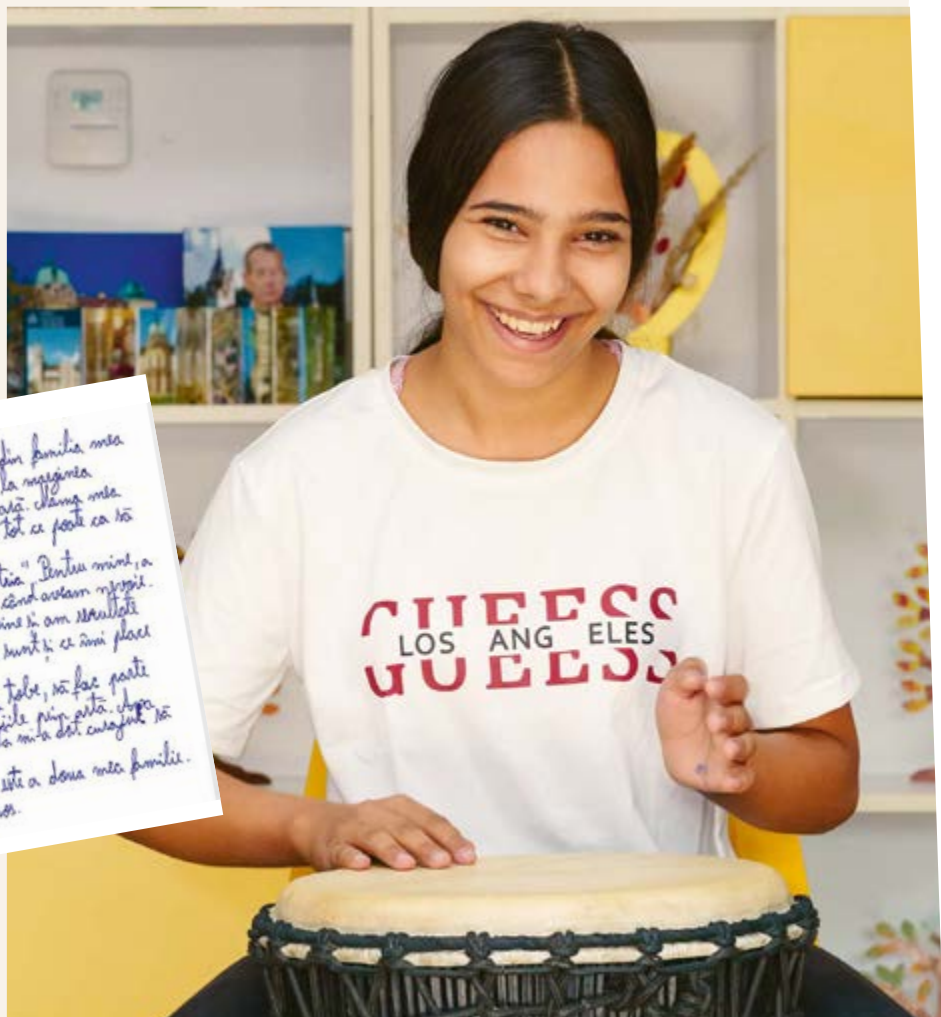 din familia mea
la marginea
mea
tot ce poate ca să
Pentru mine, a
când aveam nevoie.
și am rezultate
sunt și ce îmi place
tobe, să fac parte
prin artă.
mi-a dat curajul să
este a doua mea familie.
GUEESS
LOS ANG ELES
GUEESS